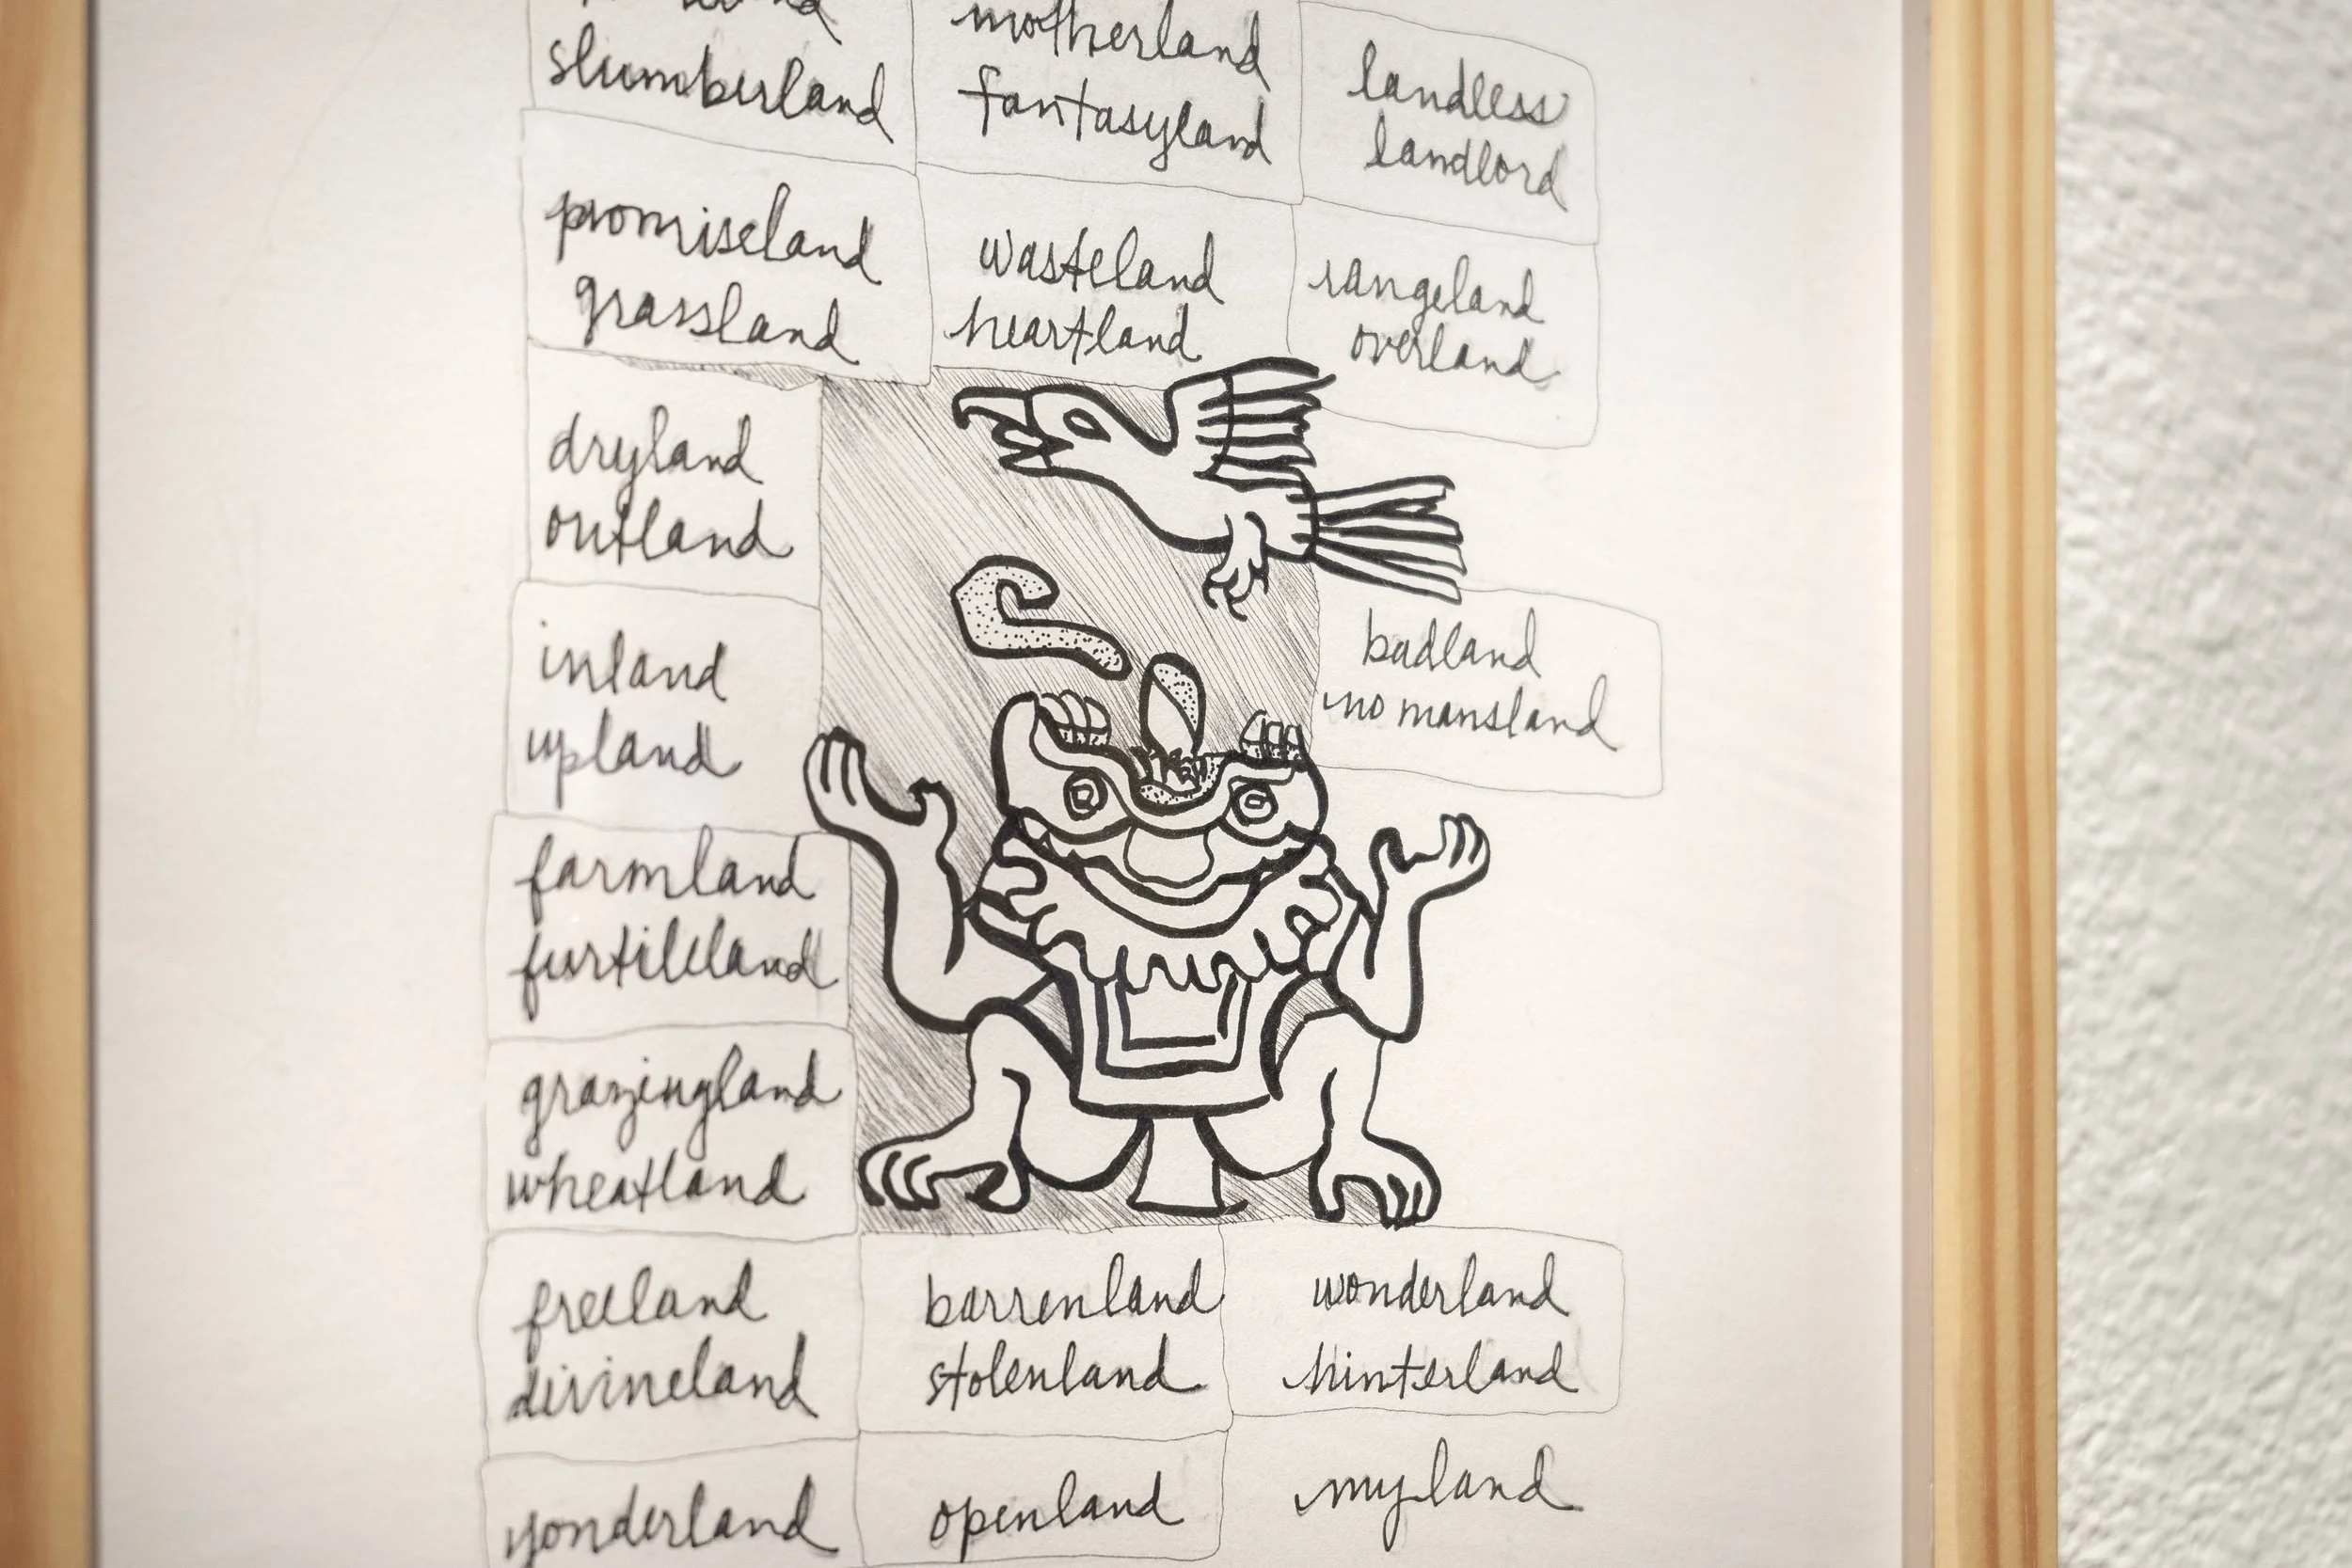 slumberland
motherland
fantasyland
landless
landlord
promiseland
grassland
wasteland
heartland
rangeland
overland
dryland
outland
inland
upland
badland
no mansland
farmland
furtileland
grazingland
wheatland
freeland
divineland
barrenland
stolenland
wonderland
hinterland
yonderland
openland
myland